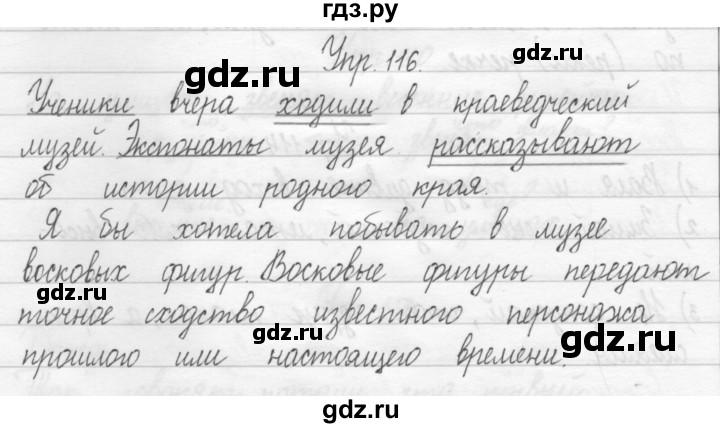 гдз.ру
Упр. 116.
gdz.ru
gdz.ru
Ученики вчера ходили в краеведческий
музей. Экспонаты музея рассказывают
gdz.ru
gdz.ru
об истории родного края.
Я бы хотела побывать в музее
восковых фигур. Восковые фигуры передают
gdz.ru
точное сходство известного персонажа
gdz.ru
gdz.ru
прошлого или настоящего времени.
gdz.ru
gdz.ru